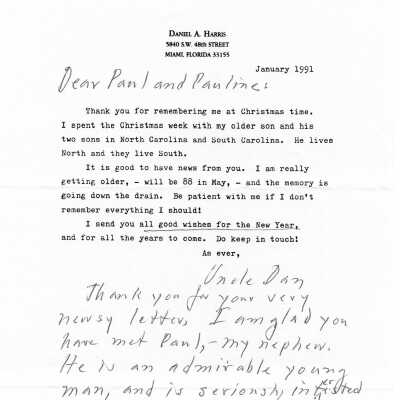 DANIEL A. HARRIS
5840 S.W. 48th STREET
MIAMI, FLORIDA 33155
January 1991
Dear Paul and Pauline:
Thank you for remembering me at Christmas time.
I spent the Christmas week with my older son and his
two sons in North Carolina and South Carolina. He lives
North and they live South.
It is good to have news from you. I am really
getting older, - will be 88 in May, - and the memory is
going down the drain. Be patient with me if I don't
remember everything I should!
I send you all good wishes for the New Year,
and for all the years to come. Do keep in touch!
As ever,
Uncle Dan
Thank you for your very
newsy letter. I am glad you
have met Paul, - my nephew.
He is an admirable young
man, and is seriously interested